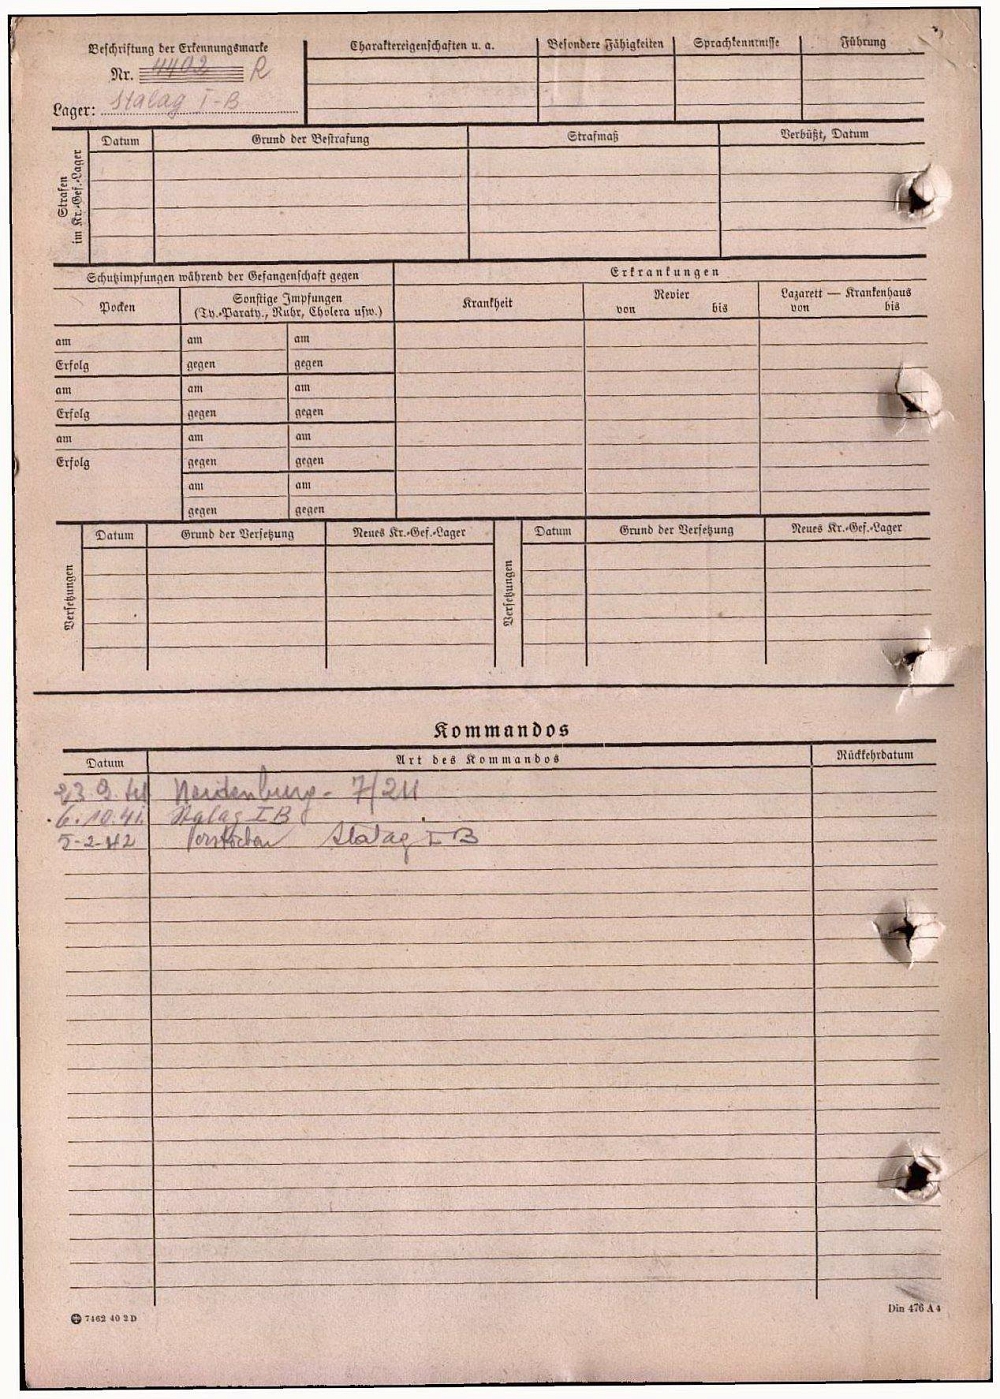 Beschriftung der Erkennungsmarke
Nr. 4402 R
Lager: Stalag I-B
Charaktereigenschaften u. a.
Besondere Fähigkeiten
Sprachkenntnisse
Führung
Strafen im Kr.-Gef.-Lager
Datum
Grund der Bestrafung
Strafmaß
Verbüßt, Datum
Schutzimpfungen während der Gefangenschaft gegen
Erkrankungen
Pocken
Sonstige Impfungen
(Ty.-Paraty., Ruhr, Cholera usw.)
Krankheit
Revier
von bis
Lazarett — Krankenhaus
von bis
am am am
Erfolg gegen gegen
am am am
Erfolg gegen gegen
am am am
Erfolg gegen gegen
am am
gegen gegen
Versetzungen
Datum
Grund der Versetzung
Neues Kr.-Gef.-Lager
Versetzungen
Datum
Grund der Versetzung
Neues Kr.-Gef.-Lager
Kommandos
Datum
Art des Kommandos
Rückkehrdatum
23 9 41 Neidenburg - 7/211
6.10.41. Stalag I B
5-2-42 Verstorben Stalag I B
7462 40 2 D
Din 476 A 4